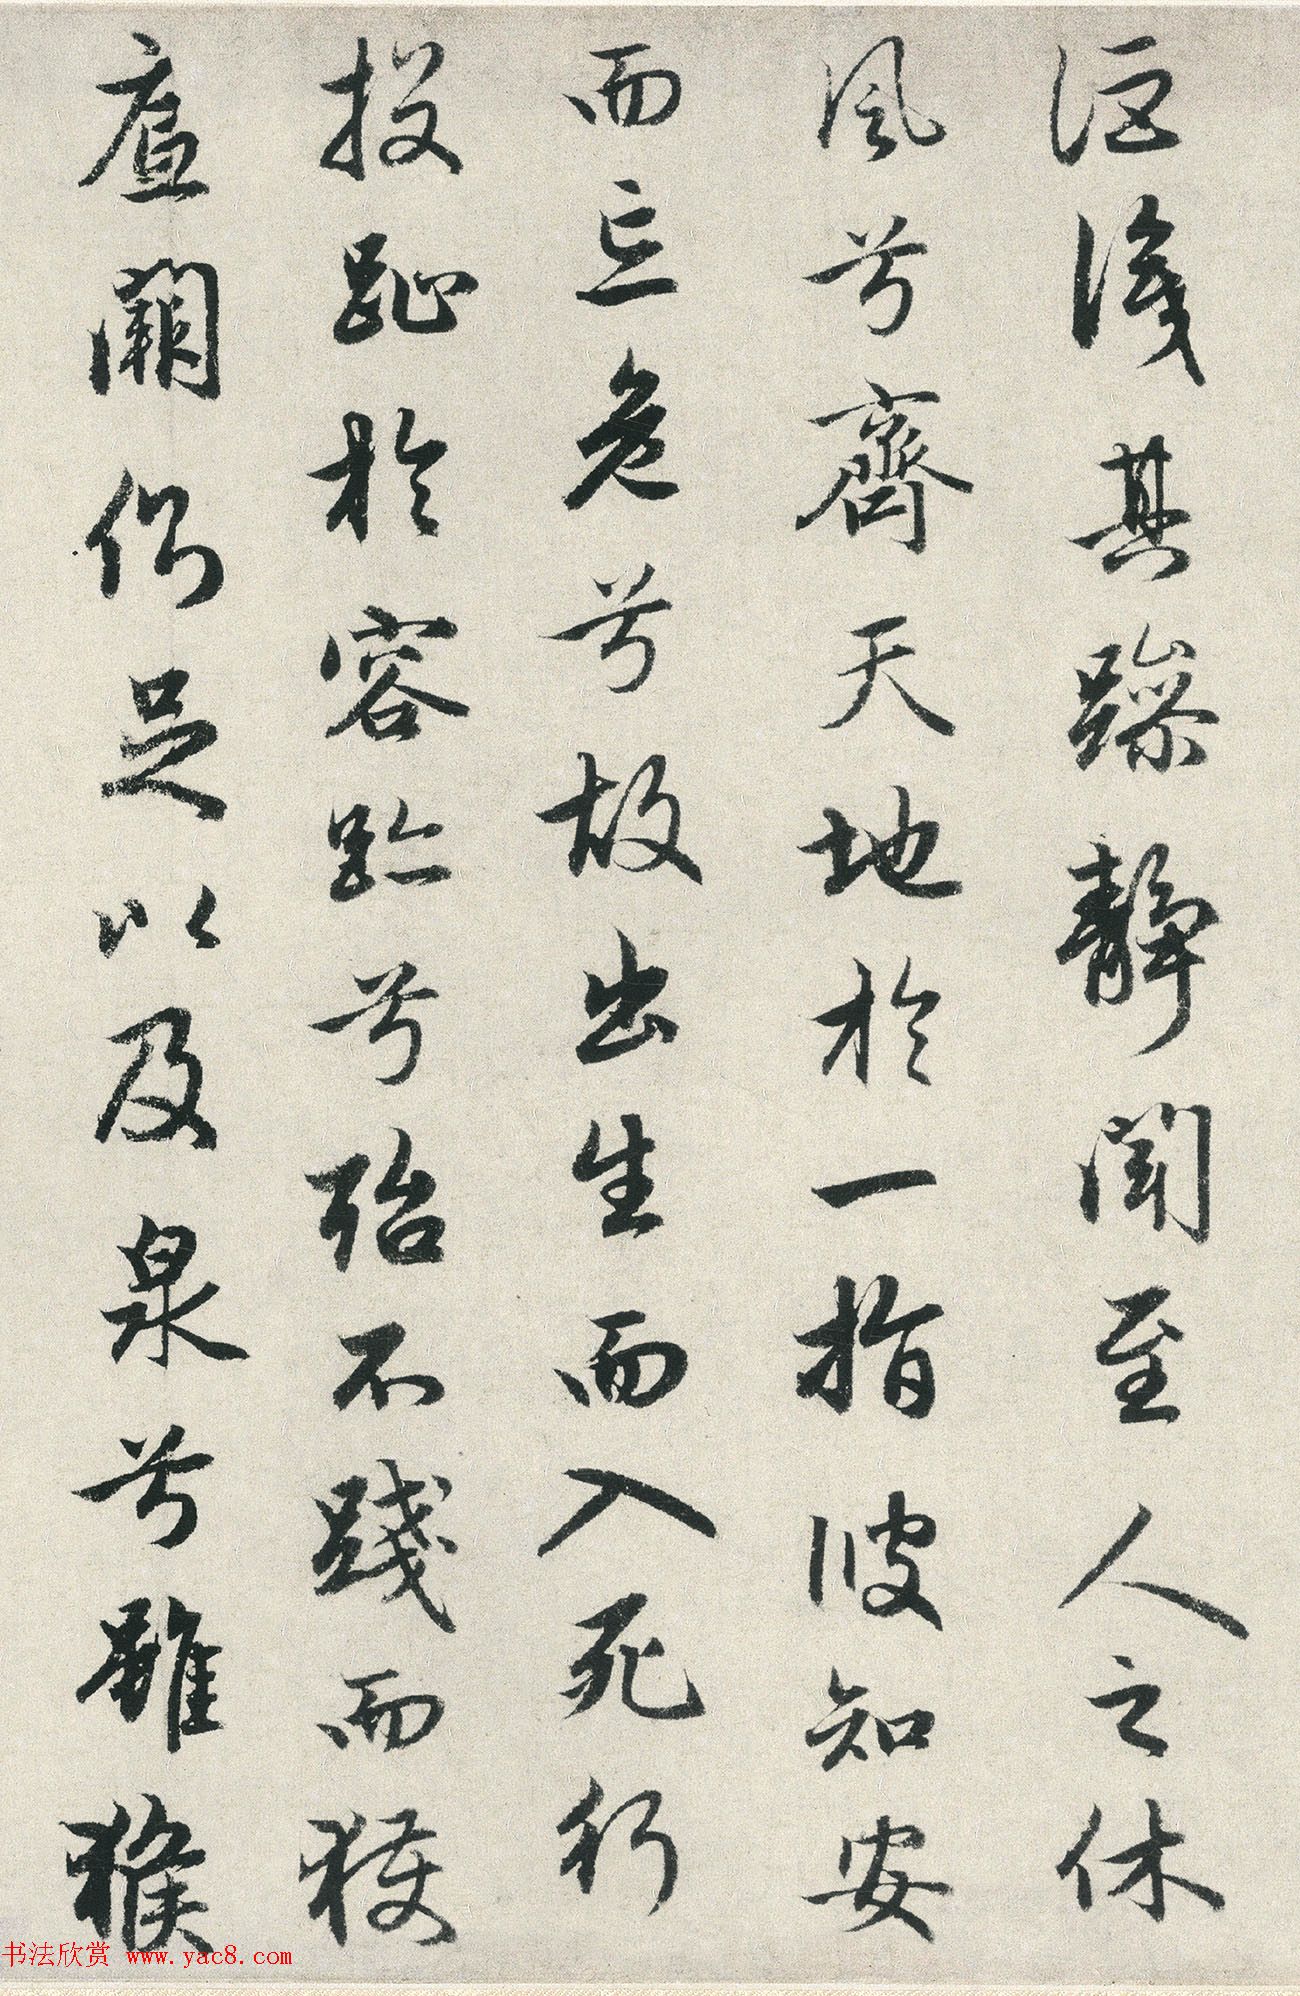 詎識其躁靜聞至人之休
風兮齊天地於一指彼知安
而忘危兮故出生而入死行
投趾於容跡兮殆不踐而獲
底闕側足以及泉兮雖猴
书法欣赏 www.yac8.com